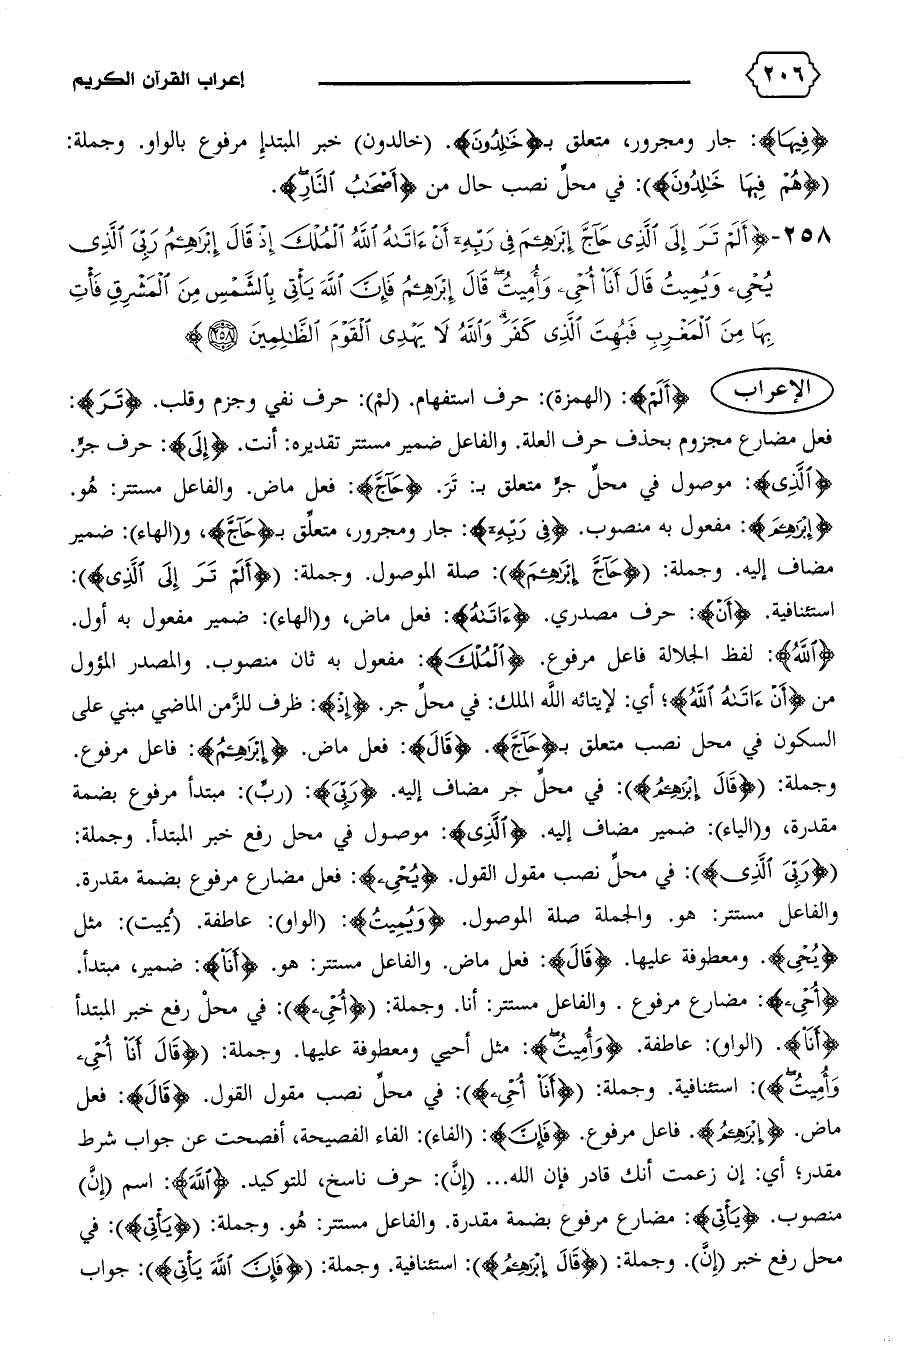 ٢٠٦
إعراب القرآن الكريم
﴿فِيهَا﴾: جار ومجرور، متعلق بـ﴿خَٰلِدُونَ﴾. (خالدون) خبر المبتدإ مرفوع بالواو. وجملة:
(﴿هُمْ فِيهَا خَٰلِدُونَ﴾): في محلِّ نصب حال من ﴿أَصْحَٰبُ ٱلنَّارِۖ﴾.
٢٥٨-﴿أَلَمْ تَرَ إِلَى ٱلَّذِى حَآجَّ إِبْرَٰهِـۧمَ فِى رَبِّهِۦٓ أَنْ ءَاتَىٰهُ ٱللَّهُ ٱلْمُلْكَ إِذْ قَالَ إِبْرَٰهِـۧمُ رَبِّىَ ٱلَّذِى
يُحْىِۦ وَيُمِيتُ قَالَ أَنَا۠ أُحْىِۦ وَأُمِيتُۖ قَالَ إِبْرَٰهِـۧمُ فَإِنَّ ٱللَّهَ يَأْتِى بِٱلشَّمْسِ مِنَ ٱلْمَشْرِقِ فَأْتِ
بِهَا مِنَ ٱلْمَغْرِبِ فَبُهِتَ ٱلَّذِى كَفَرَۗ وَٱللَّهُ لَا يَهْدِى ٱلْقَوْمَ ٱلظَّٰلِمِينَ ٢٥٨﴾
الإعراب ﴿أَلَمْ﴾: (الهمزة): حرف استفهام. (لمْ): حرف نفي وجزم وقلب. ﴿تَرَ﴾:
فعل مضارع مجزوم بحذف حرف العلة. والفاعل ضمير مستتر تقديره: أنت. ﴿إِلَى﴾: حرف جرٍّ.
﴿ٱلَّذِى﴾: موصول في محلِّ جرٍّ متعلق بـ: تَرَ. ﴿حَآجَّ﴾: فعل ماض. والفاعل مستتر: هُو.
﴿إِبْرَٰهِـۧمَ﴾: مفعول به منصوب. ﴿فِى رَبِّهِۦٓ﴾: جار ومجرور، متعلِّق بـ﴿حَآجَّ﴾، و(الهاء): ضمير
مضاف إليه. وجملة: (﴿حَآجَّ إِبْرَٰهِـۧمَ﴾): صلة الموصول. وجملة: (﴿أَلَمْ تَرَ إِلَى ٱلَّذِى﴾):
استئنافية. ﴿أَنْ﴾: حرف مصدري. ﴿ءَاتَىٰهُ﴾: فعل ماض، و(الهاء): ضمير مفعول به أول.
﴿ٱللَّهُ﴾: لفظ الجلالة فاعل مرفوع. ﴿ٱلْمُلْكَ﴾: مفعول به ثان منصوب. والمصدر المؤول
من ﴿أَنْ ءَاتَىٰهُ ٱللَّهُ﴾؛ أي: لإيتائه اللَّه الملك: في محلِّ جر. ﴿إِذْ﴾: ظرف للزَّمن الماضي مبني على
السكون في محل نصب متعلق بـ﴿حَآجَّ﴾. ﴿قَالَ﴾: فعل ماض. ﴿إِبْرَٰهِـۧمُ﴾: فاعل مرفوع.
وجملة: (﴿قَالَ إِبْرَٰهِـۧمُ﴾): في محلِّ جر مضاف إليه. ﴿رَبِّىَ﴾: (ربِّ): مبتدأ مرفوع بضمة
مقدرة، و(الياء): ضمير مضاف إليه. ﴿ٱلَّذِى﴾: موصول في محل رفع خبر المبتدأ. وجملة:
(﴿رَبِّىَ ٱلَّذِى﴾): في محلِّ نصب مقول القول. ﴿يُحْىِۦ﴾: فعل مضارع مرفوع بضمة مقدرة.
والفاعل مستتر: هو. والجملة صلة الموصول. ﴿وَيُمِيتُ﴾: (الواو): عاطفة. (يُميت): مثل
﴿يُحْىِ﴾. ومعطوفة عليها. ﴿قَالَ﴾: فعل ماض. والفاعل مستتر: هو. ﴿أَنَا۠﴾: ضمير، مبتدأ.
﴿أُحْىِۦ﴾: مضارع مرفوع . والفاعل مستتر: أنا. وجملة: (﴿أُحْىِۦ﴾): في محلْ رفع خبر المبتدأ
﴿أَنَا۠﴾. (الواو): عاطفة. ﴿وَأُمِيتُۖ﴾: مثل أحيي ومعطوفة عليها. وجملة: (﴿قَالَ أَنَا۠ أُحْىِۦ
وَأُمِيتُۖ﴾): استئنافية. وجملة: (﴿أَنَا۠ أُحْىِۦ﴾): في محلِّ نصب مقول القول. ﴿قَالَ﴾: فعل
ماض. ﴿إِبْرَٰهِـۧمُ﴾. فاعل مرفوع. ﴿فَإِنَّ﴾: (الفاء): الفاء الفصيحة، أفصحت عن جواب شرط
مقدر؛ أي: إن زعمت أنك قادر فإن الله... (إنَّ): حرف ناسخ، للتوكيد. ﴿ٱللَّهَ﴾: اسم (إنَّ)
منصوب. ﴿يَأْتِى﴾: مضارع مرفوع بضمة مقدرة. والفاعل مستتر: هُو. وجملة: (﴿يَأْتِى﴾): في
محل رفع خبر (إنَّ). وجملة: (﴿قَالَ إِبْرَٰهِـۧمُ﴾): استئنافية. وجملة: (﴿فَإِنَّ ٱللَّهَ يَأْتِى﴾): جواب